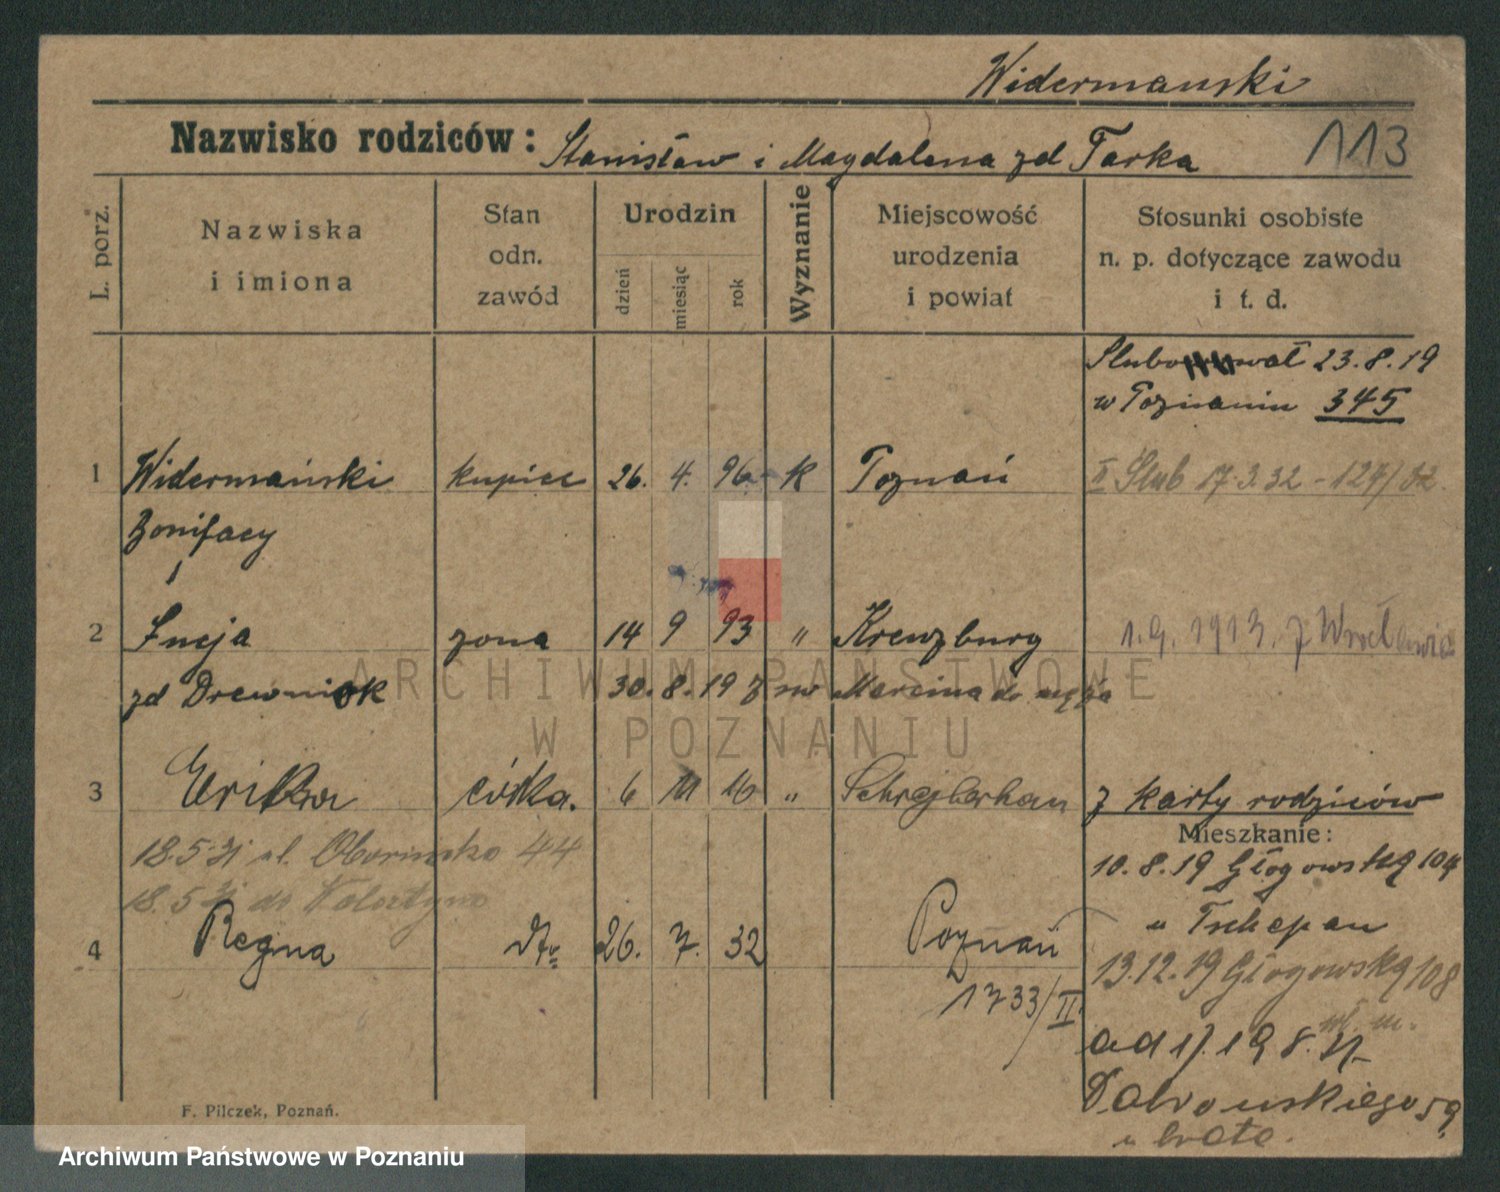 Widermański
Nazwisko rodziców: Stanisław i Magdalena zd Tarka
113
L. porz.
Nazwiska i imiona
Stan odn. zawód
Urodzin
dzień miesiąc rok
Wyznanie
Miejscowość urodzenia i powiat
Stosunki osobiste n. p. dotyczące zawodu i t. d.
23.8.19
w Poznaniu 345
1 Widermański kupiec 26. 4. 96 k Poznań
II Ślub 17.3.32 - 127/32.
Bonifacy
2 Łucja zona 14 9 93 " Kreuzburg
1.9.1913. z Wrocławia
zd Drewniok 30.8.19 z św Marcina do męża
3 Erika córka. 6 11 16 " Schrejberhau
z karty rodziców
Mieszkanie:
18.5.31 ul. Obornicka 44
10.8.19 Głogowska 104
18.5.31 do
u Tschepan
4 Regina dto 26. 7. 32 Poznań
13.12.19 Głogowska 108
1733/II
od 17.198.
Dabrowskiego 59
u brata.
F. Pilczek, Poznań.
ARCHIWUM PAŃSTWOWE
W POZNANIU
Archiwum Państwowe w Poznaniu